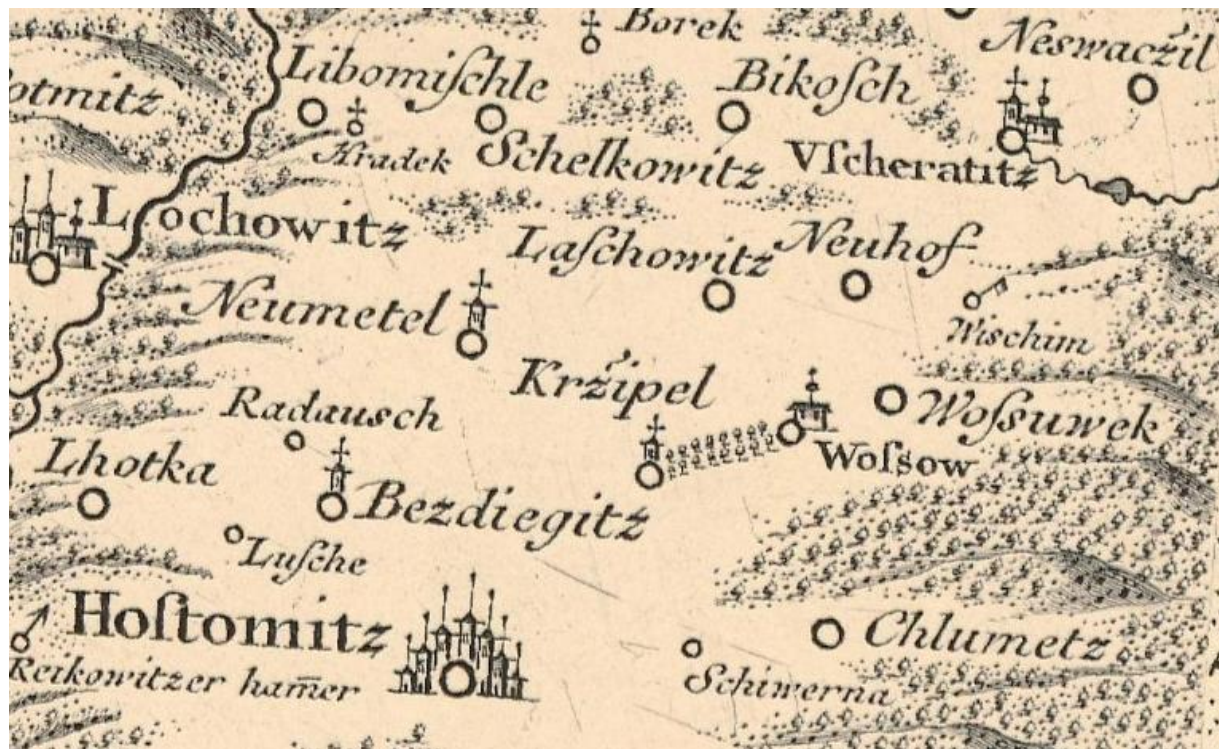 Borek
Neswacžil
Libomiſchle
Bikoſch
otmitz
Kradek
Schelkowitz
Vſcheratitz
Lochowitz
Laſchowitz
Neuhof
Neumetel
Wiſchim
Kržipel
Radausch
Woſsuwek
Woſsow
Lhotka
Bezdiegitz
Luſche
Hoſtomitz
Chlumetz
Reikowitzer ham̄er
Schiwerna